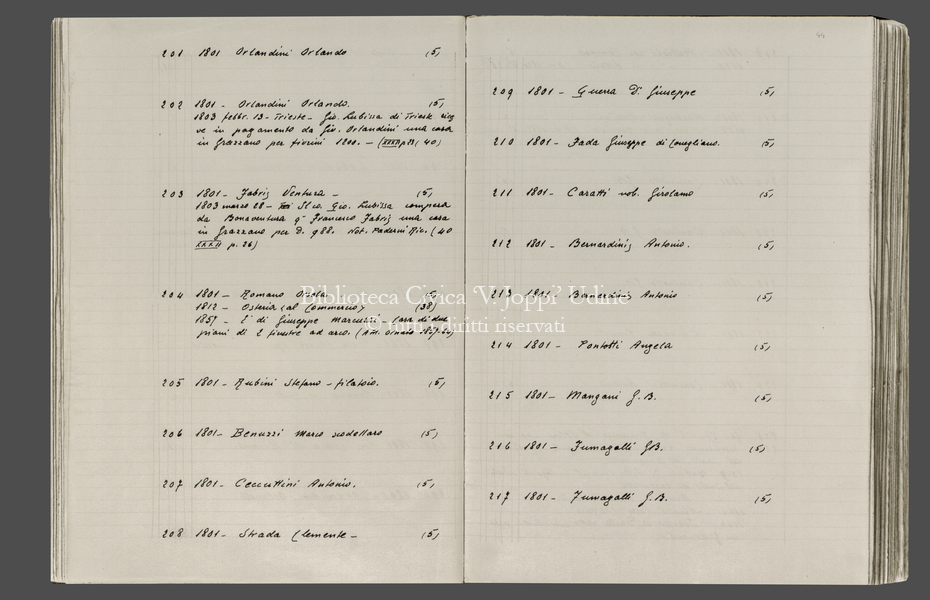 201 1801 Orlandini Orlando (5)
202 1801 - Orlandini Orlando. (5)
1803 febbr. 13 - Trieste - Gio. Lubissa di Trieste
ve in pagamento da Gio. Orlandini una casa
in Grazzano per fiorini 1200. - (XXXII p 23 (40)
203 1801 - Fabriz Ventura - (5)
1803 marzo 28 - Gio. Lubissa compera
da Bonaventura q. Francesco Fabriz una casa
in Grazzano per D. 988. Not. Paderni Nic. (40
XXXII p. 26)
204 1801 - Romano Odda (5)
1812 - Osteria (al Commercio) (38)
1857 - E' di Giuseppe Marcuzzi. Casa di due
piani di 2 finestre ad arco.
205 1801 - Rubini Stefano - filatoio. (5)
206 1801 - Benuzzi Marco scodellaro (5)
207 1801 - Ceccuttini Antonio. (5)
208 1801 - Strada Clemente - (5)
44
209 1801 - Guerra D. Giuseppe (5)
210 1801 - Fada Giuseppe di Conegliano. (5)
211 1801 - Caratti nob. Girolamo (5)
212 1801 - Bernardinis Antonio. (5)
213 1801 - Bernardinis Antonio (5)
214 1801 - Pontotti Angela (5)
215 1801 - Mangani G.B. (5)
216 1801 - Fumagalli GB. (5)
217 1801 - Fumagalli G.B. (5)
Biblioteca Civica 'V. Joppi' Udine
© tutti i diritti riservati